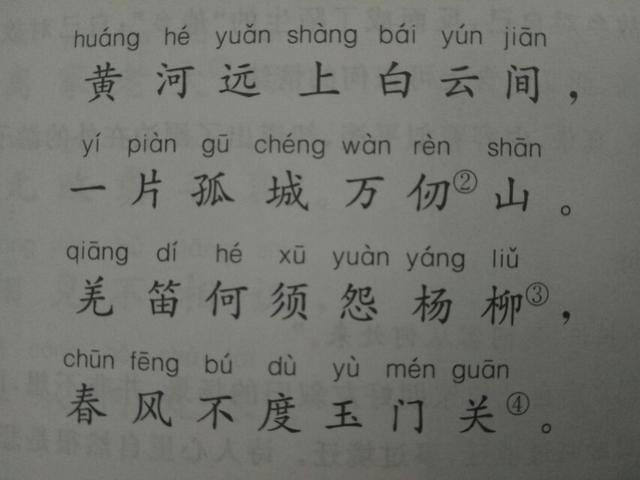 huáng hé yuǎn shàng bái yún jiān
黄河远上白云间，
yí piàn gū chéng wàn rèn shān
一片孤城万仞②山。
qiāng dí hé xū yuàn yáng liǔ
羌笛何须怨杨柳③，
chūn fēng bú dù yù mén guān
春风不度玉门关④。